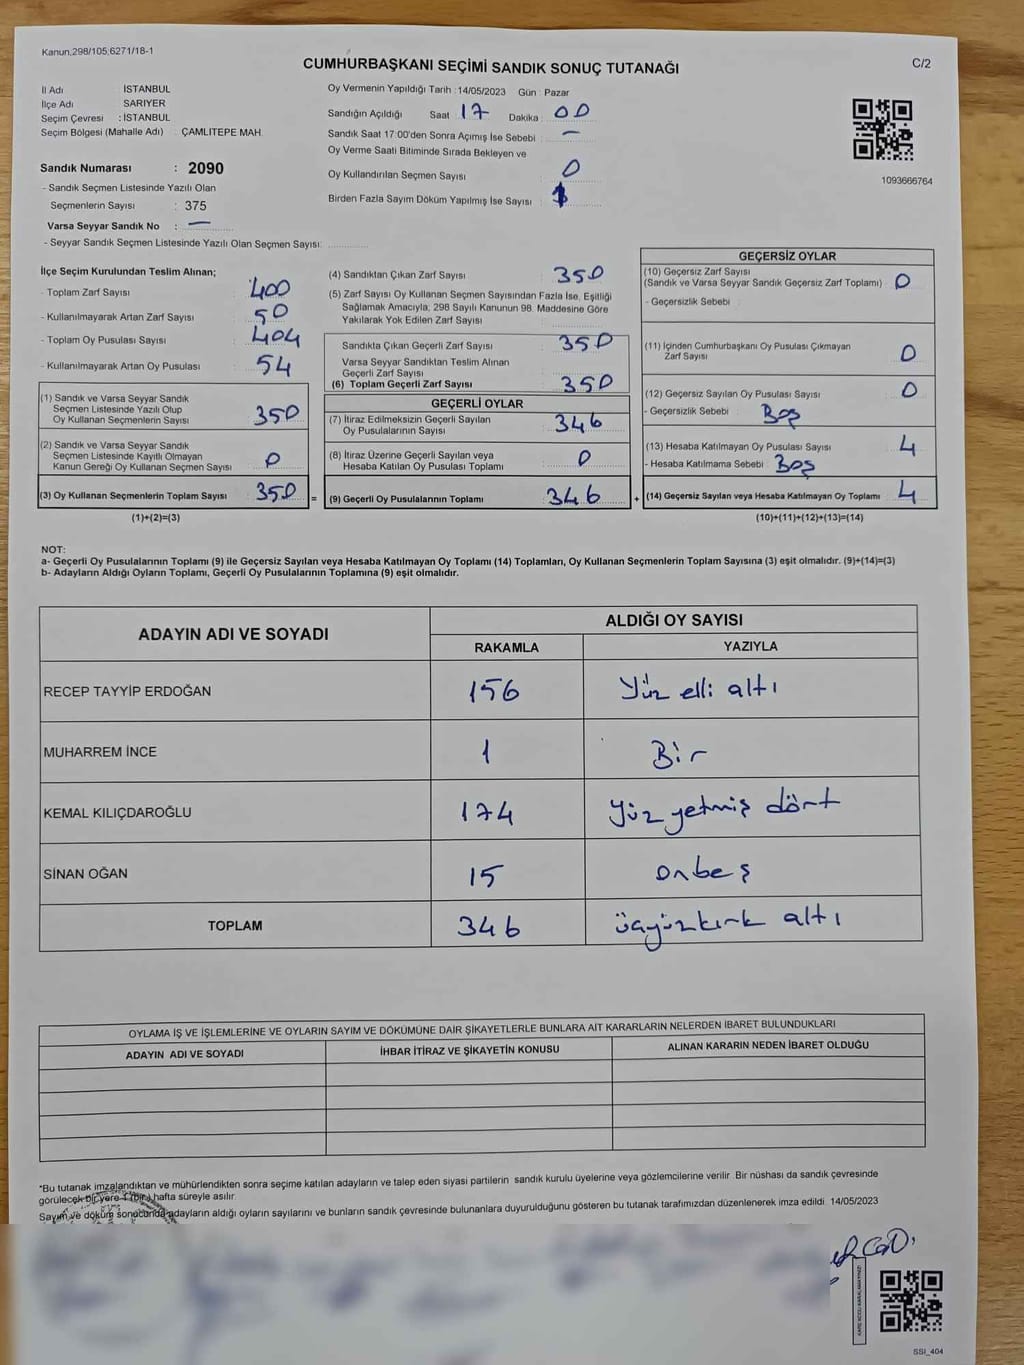 Kanun;298/105;6271/18-1
CUMHURBAŞKANI SEÇİMİ SANDIK SONUÇ TUTANAĞI
C/2
İl Adı : İSTANBUL
İlçe Adı : SARIYER
Seçim Çevresi : İSTANBUL
Seçim Bölgesi (Mahalle Adı) : ÇAMLITEPE MAH.
Sandık Numarası : 2090
- Sandık Seçmen Listesinde Yazılı Olan
Seçmenlerin Sayısı : 375
Varsa Seyyar Sandık No : —
- Seyyar Sandık Seçmen Listesinde Yazılı Olan Seçmen Sayısı:
Oy Vermenin Yapıldığı Tarih : 14/05/2023 Gün : Pazar
Sandığın Açıldığı Saat 17 Dakika : 00
Sandık Saat 17:00'den Sonra Açımış İse Sebebi : —
Oy Verme Saati Bitiminde Sırada Bekleyen ve
Oy Kullandırılan Seçmen Sayısı : 0
Birden Fazla Sayım Döküm Yapılmış İse Sayısı :
1093666764
İlçe Seçim Kurulundan Teslim Alınan;
- Toplam Zarf Sayısı : 400
- Kullanılmayarak Artan Zarf Sayısı : 50
- Toplam Oy Pusulası Sayısı : 404
- Kullanılmayarak Artan Oy Pusulası : 54
(1) Sandık ve Varsa Seyyar Sandık
Seçmen Listesinde Yazılı Olup
Oy Kullanan Seçmenlerin Sayısı : 350
(2) Sandık ve Varsa Seyyar Sandık
Seçmen Listesinde Kayıtlı Olmayan
Kanun Gereği Oy Kullanan Seçmen Sayısı : 0
(3) Oy Kullanan Seçmenlerin Toplam Sayısı : 350
(1)+(2)=(3)
=
(4) Sandıktan Çıkan Zarf Sayısı : 350
(5) Zarf Sayısı Oy Kullanan Seçmen Sayısından Fazla İse, Eşitliği
Sağlamak Amacıyla; 298 Sayılı Kanunun 98. Maddesine Göre
Yakılarak Yok Edilen Zarf Sayısı :
Sandıkta Çıkan Geçerli Zarf Sayısı : 350
Varsa Seyyar Sandıktan Teslim Alınan
Geçerli Zarf Sayısı :
(6) Toplam Geçerli Zarf Sayısı : 350
GEÇERLİ OYLAR
(7) İtiraz Edilmeksizin Geçerli Sayılan
Oy Pusulalarının Sayısı : 346
(8) İtiraz Üzerine Geçerli Sayılan veya
Hesaba Katılan Oy Pusulası Toplamı : 0
(9) Geçerli Oy Pusulalarının Toplamı : 346
+
GEÇERSİZ OYLAR
(10) Geçersiz Zarf Sayısı
(Sandık ve Varsa Seyyar Sandık Geçersiz Zarf Toplamı) : 0
- Geçersizlik Sebebi :
(11) İçinden Cumhurbaşkanı Oy Pusulası Çıkmayan
Zarf Sayısı : 0
(12) Geçersiz Sayılan Oy Pusulası Sayısı : 0
- Geçersizlik Sebebi : Boş
(13) Hesaba Katılmayan Oy Pusulası Sayısı : 4
- Hesaba Katılmama Sebebi : Boş
(14) Geçersiz Sayılan veya Hesaba Katılmayan Oy Toplamı : 4
(10)+(11)+(12)+(13)=(14)
NOT:
a- Geçerli Oy Pusulalarının Toplamı (9) ile Geçersiz Sayılan veya Hesaba Katılmayan Oy Toplamı (14) Toplamları, Oy Kullanan Seçmenlerin Toplam Sayısına (3) eşit olmalıdır. (9)+(14)=(3)
b- Adayların Aldığı Oyların Toplamı, Geçerli Oy Pusulalarının Toplamına (9) eşit olmalıdır.
ADAYIN ADI VE SOYADI
ALDIĞI OY SAYISI
RAKAMLA YAZIYLA
RECEP TAYYİP ERDOĞAN 156 Yüz elli altı
MUHARREM İNCE 1 Bir
KEMAL KILIÇDAROĞLU 174 yüz yetmiş dört
SİNAN OĞAN 15 onbeş
TOPLAM 346 üçyüzkırk altı
OYLAMA İŞ VE İŞLEMLERİNE VE OYLARIN SAYIM VE DÖKÜMÜNE DAİR ŞİKAYETLERLE BUNLARA AİT KARARLARIN NELERDEN İBARET BULUNDUKLARI
ADAYIN ADI VE SOYADI İHBAR İTİRAZ VE ŞİKAYETİN KONUSU ALINAN KARARIN NEDEN İBARET OLDUĞU
*Bu tutanak imzalandıktan ve mühürlendikten sonra seçime katılan adayların ve talep eden siyasi partilerin sandık kurulu üyelerine veya gözlemcilerine verilir. Bir nüshası da sandık çevresinde
görülecek bir yere 1 (bir) hafta süreyle asılır.
Sayım ve döküm sonucunda adayların aldığı oyların sayılarını ve bunların sandık çevresinde bulunanlara duyurulduğunu gösteren bu tutanak tarafımızdan düzenlenerek imza edildi. 14/05/2023
SSİ_404